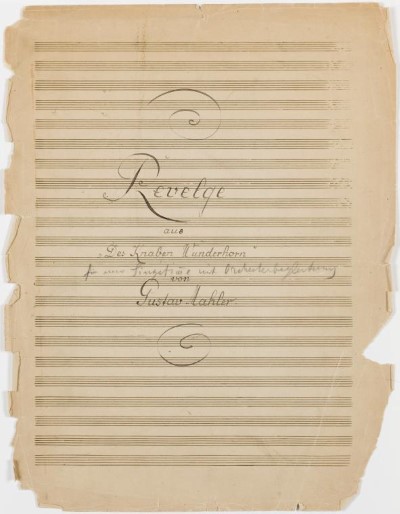 Revelge
aus
„Des Knaben Wunderhorn"
für eine Singstimme mit Orchesterbegleitung
von
Gustav Mahler